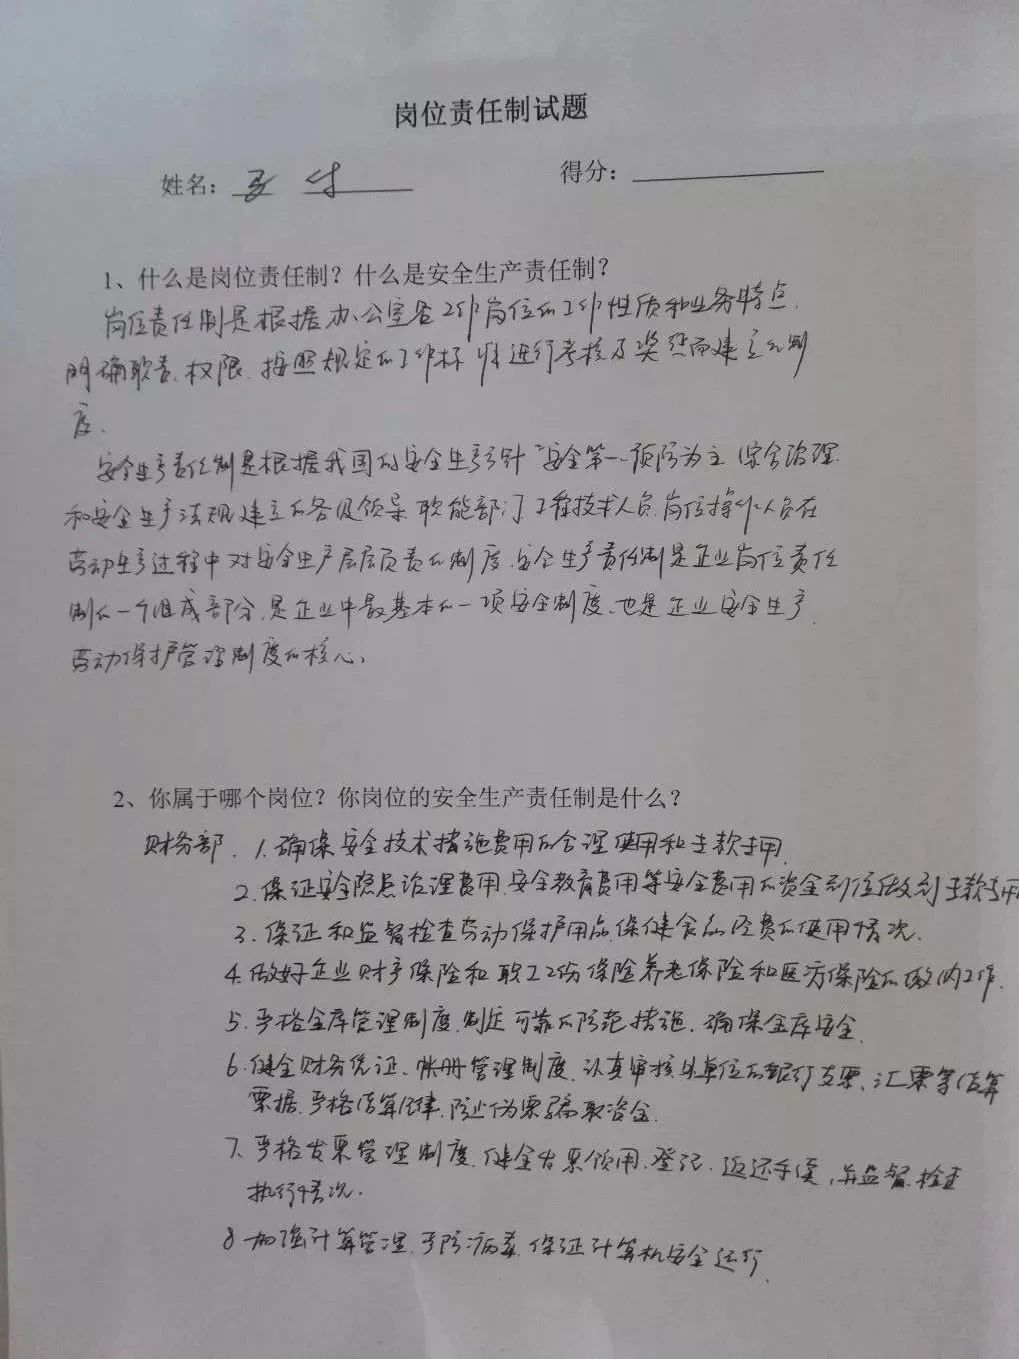 岗位责任制试题
姓名： 得分：
1、什么是岗位责任制？什么是安全生产责任制？
岗位责任制是根据办公室各工作岗位的工作性质和业务特点，
明确职责、权限、按照规定的工作标准进行考核及奖惩而建立的制
度。
安全生产责任制是根据我国的安全生产方针“安全第一、预防为主、综合治理
和安全生产法规建立的各级领导、职能部门、工程技术人员、岗位操作人员在
劳动生产过程中对安全生产层层负责的制度。安全生产责任制是企业岗位责任
制的一个组成部分，是企业中最基本的一项安全制度，也是企业安全生产、
劳动保护管理制度的核心。
2、你属于哪个岗位？你岗位的安全生产责任制是什么？
财务部．1.确保安全技术措施费用的合理使用和专款专用。
2.保证安全隐患治理费用、安全教育费用等安全费用的资金到位做到专款专用
3.保证和监督检查劳动保护用品、保健食品经费的使用情况。
4.做好企业财产保险和职工工伤保险养老保险和医疗保险的缴纳工作．
5.严格金库管理制度，制定可靠的防范措施，确保金库安全．
6.健全财务凭证、帐册管理制度，认真审核外单位的银行支票、汇票等结算
票据，严格结算纪律，防止伪票骗取资金．
7.严格发票管理制度，健全发票领用、登记、返还手续，并监督、检查
执行情况．
8.加强计算管理，严防病毒，保证计算机安全运行．